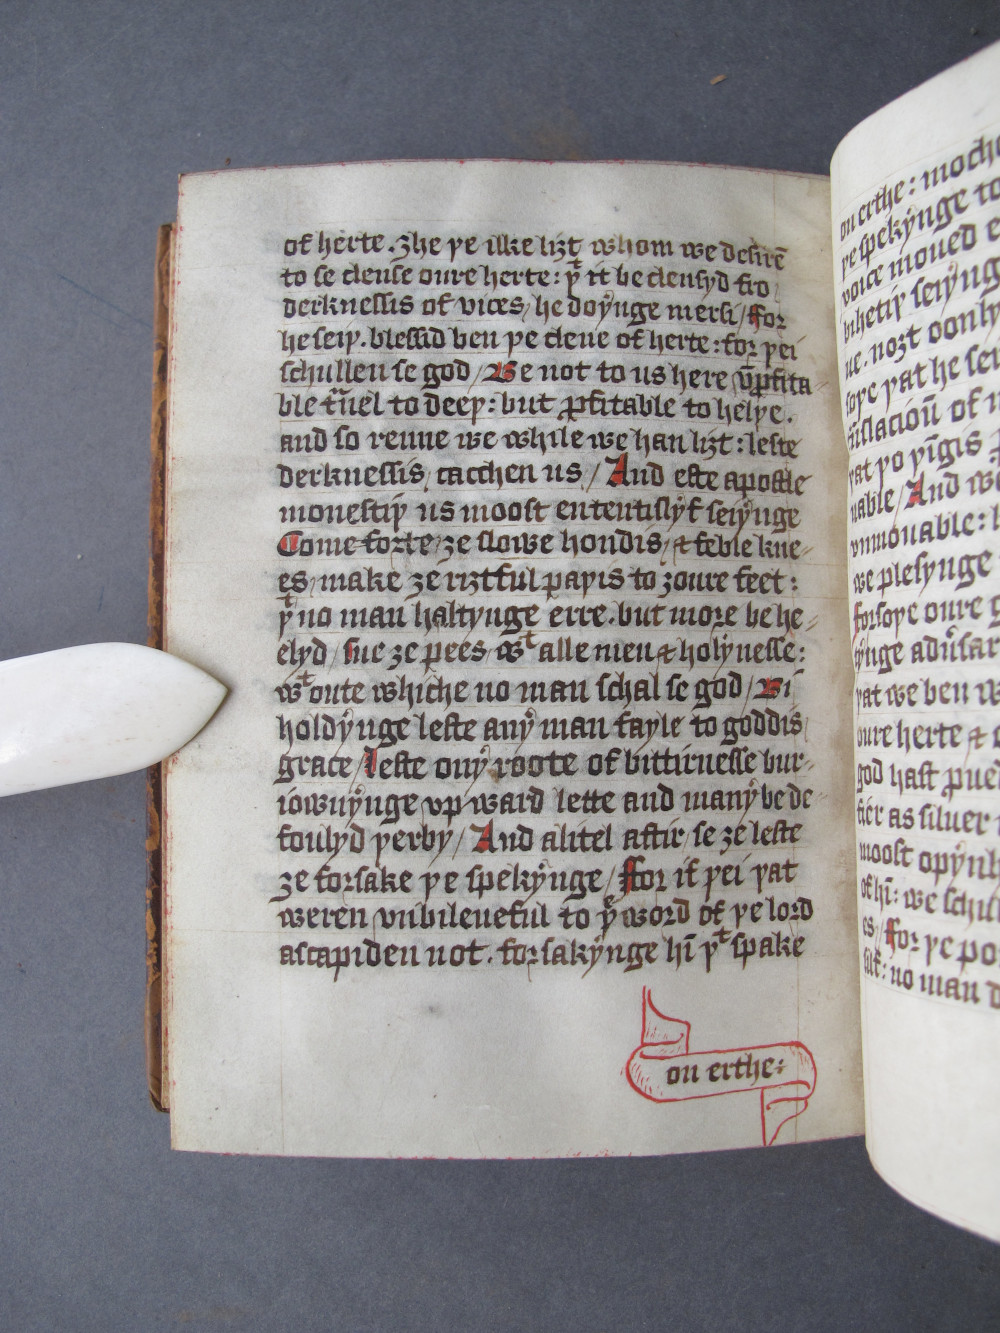 of herte. Ȝhe þe ilke liȝt whom we desirē
to se clense oure herte: þͭ it be clensyd fro
derknessis of vices/ he doynge mersi/ For
he seiþ. blessid ben þe clene of herte: for þei
schullen se god/ Be not to us here vnꝓfita
ble to deep: but ꝓfitable to helþe.
and so renne we while we han liȝt: leste
derknessis/ cacchen us/ And efte apostle
monestiþ us moost ententislyf seiynge
Come forte/ ȝe slowe hondis/ ⁊ feble kne
es/ make ȝe riȝtful paþis to ȝoure feet:
þͭ no man haltynge erre. but more be he
elyd/ sue ȝe pees/ wͭ alle men ⁊ holynesse:
wͭ oute whiche no man schal se god/ Bi
holdynge leste any man fayle to goddis
grace/ leste ony roote of bittirnesse bur
iownynge vp ward lette and many be de
foulyd þerby/ And a litel aftir/ se ȝe leste
ȝe forsake þe spekynge/ For if þei þat
weren vnbileueful to þe word of þe lord
ascapiden not. forsakynge hī þͭ spake
on erthe:
on erthe: moche
þe spekynge to
voice moued e
bihetiþ seiyng
ue. noȝt oonly
soþe þat he sei
of
þat þo þīgis
uable/ And we
vnmouable:
we plesynge
forsoþe oure g
tynge
þat we ben
oure herte ⁊
god hast
fier as siluer
moost opynly
of hī: we schul
es/ For þe po
silf: no man d